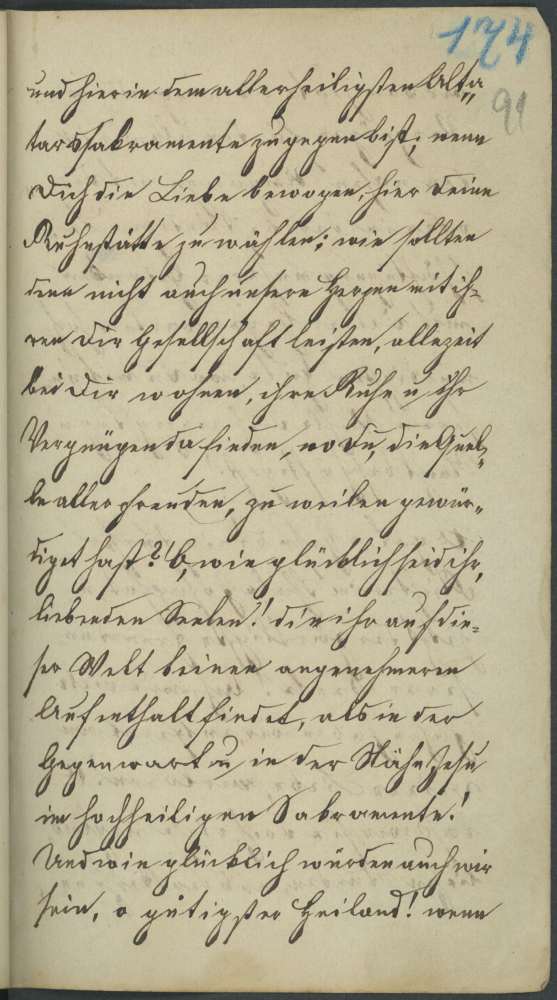 174
91
und hier in dem allerheiligsten Alta„
tarssakramente zugegen bist; wenn
Dich die Liebe bewogen, hier deine
Ruhestätte zu wählen; wie sollten
denn nicht auch unsere Herzen mit ih=
ren Dir Gesellschaft leisten, allezeit
bei Dir wohnen, ihre Ruhe u ihr
Vergnügen da finden, wo Du, die Quel„
le aller Freuden, zu weilen gewür„
diget hast? O, wie glücklich seid ihr,
liebenden Seelen! die ihr auf die=
ser Welt keinen angenehmeren
Aufenthalt findet, als in der
Gegenwart u in der Nähe Jesu
im hochheiligen Sakramente!
Und wie glücklich würden auch wir
sein, o gütigster Heiland! wenn